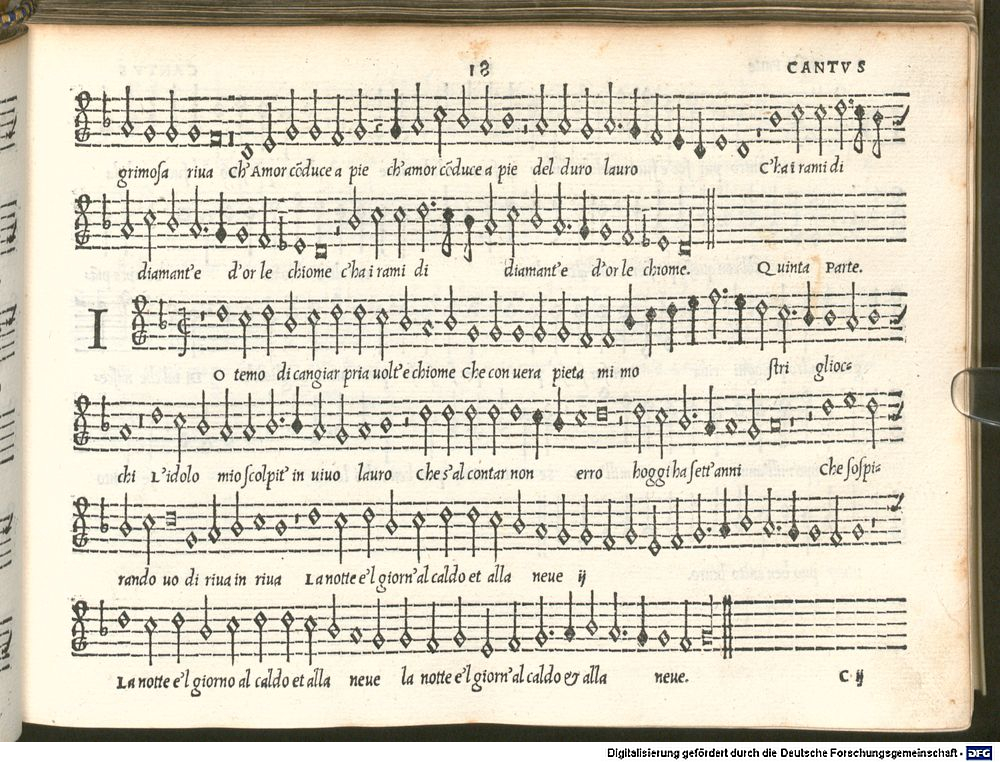 18 CANTVS
grimosa riua Ch'Amor cõduce a pie ch'amor cõduce a pie del duro lauro C'ha i rami di
diamant'e d'or le chiome c'ha i rami di diamant'e d'or le chiome. Quinta Parte.
I
O temo di cangiar pria uolt'e chiome Che con uera pieta mi mo stri glioc=
chi L'idolo mio scolpit' in uiuo lauro Che s'al contar non erro hoggi ha sett'anni Che sospi=
rando uo di riua in riua La notte e'l giorn'al caldo et alla neue ij
La notte e'l giorno al caldo et alla neue la notte e'l giorn'al caldo & alla neue.
C ij
Digitalisierung gefördert durch die Deutsche Forschungsgemeinschaft - DFG